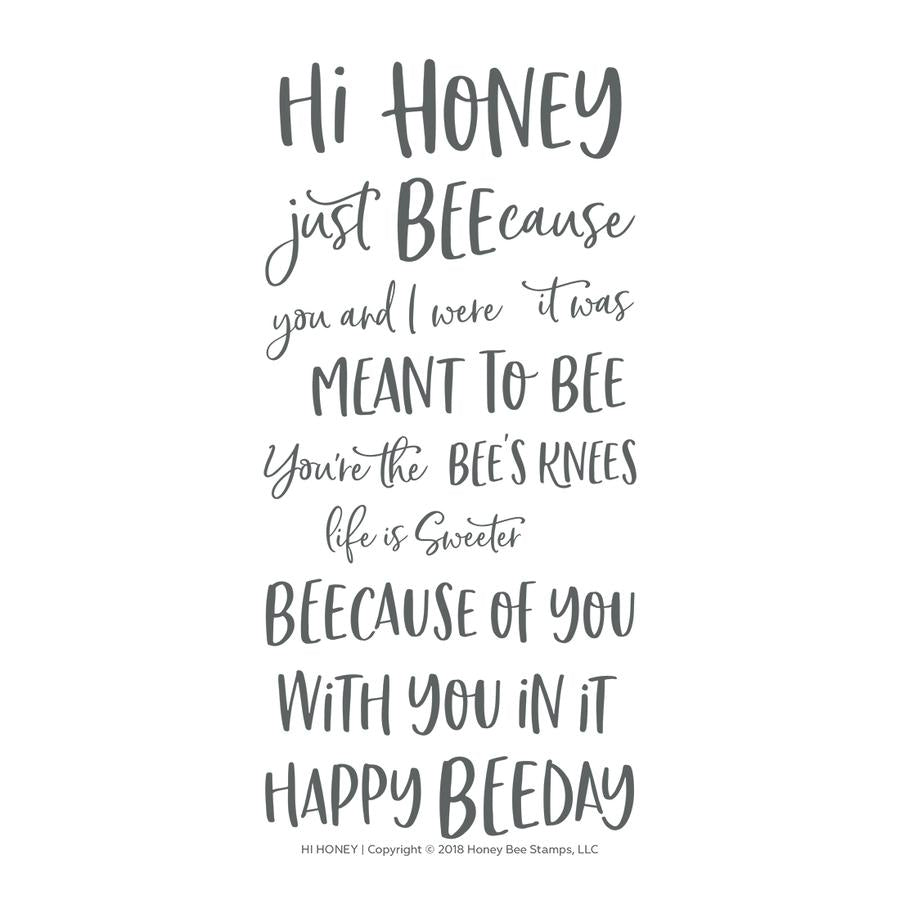 Hi HONEY
just BEEcause
you and I were it was
MEANT TO BEE
You're the BEE'S KNEES
life is Sweeter
BEECAUSE OF YOU
WiTH YOU iN iT
HAPPY BEEDAY
HI HONEY | Copyright © 2018 Honey Bee Stamps, LLC